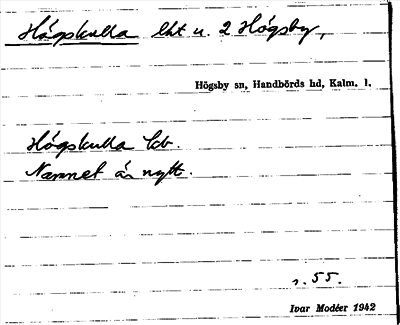 Högskulla lht u. 2 Högsby,
Högsby sn, Handbörds hd, Kalm. l.
Högskulla lɔb.
Namnet är nytt.
s. 55.
Ivar Modéer 1942